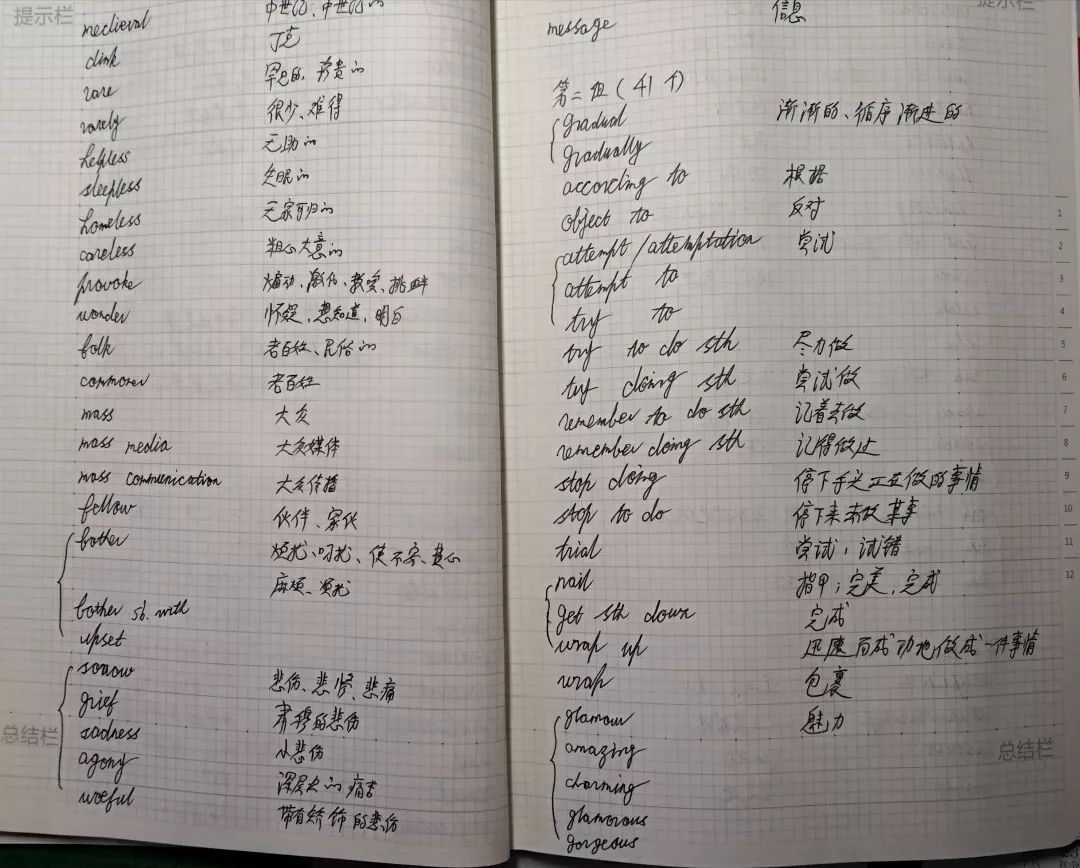 提示栏
medieval 中世纪、中世纪的
dink 丁克
rare 罕见的、珍贵的
rarely 很少、难得
helpless 无助的
sleepless 失眠的
homeless 无家可归的
careless 粗心大意的
provoke 煽动、激怒、教唆、挑衅
wonder 怀疑、想知道、明白
folk 老百姓、民俗的
commoner 老百姓
mass 大众
mass media 大众媒体
mass communication 大众传播
fellow 伙伴、家伙
bother 烦扰、叨扰、使不安、费心
麻烦、烦扰
bother sb. with
upset
sorrow 悲伤、悲痛
grief 肃穆的悲伤
sadness 小悲伤
agony 深层次的痛苦
woeful 带有矫饰的悲伤
总结栏
提示栏
message 信息
第二组（41个）
gradual 渐渐的、循序渐进的
gradually
according to 根据
object to 反对
attempt/attemptation 尝试
attempt to
try to
try to do sth 尽力做
try doing sth 尝试做
remember to do sth 记着去做
remember doing sth 记得做过
stop doing 停下手头正在做的事情
stop to do 停下来去做某事
trial 尝试，试错
nail 指甲；完美、完成
get sth down 完成
wrap up 迅速而成功地做成一件事情
wrap 包裹
glamour 魅力
amazing
charming
glamorous
gorgeous
总结栏
1
2
3
4
5
6
7
8
9
10
11
12